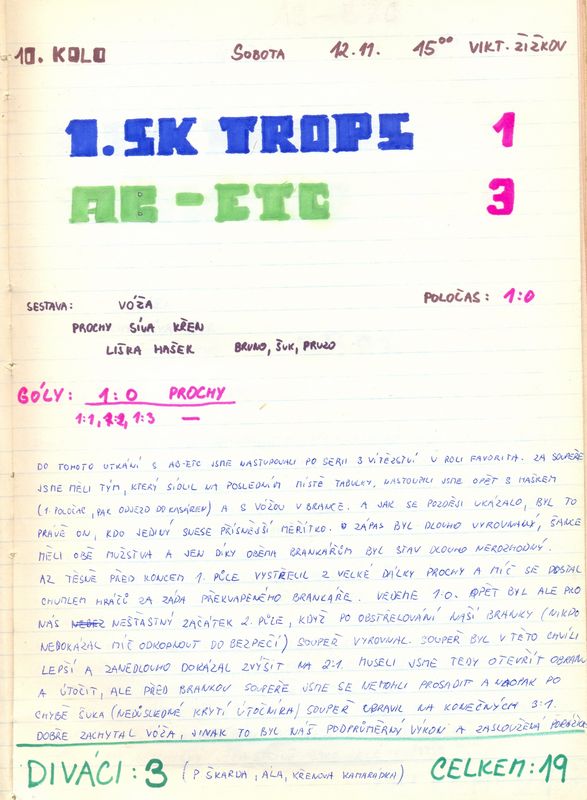 10. KOLO SOBOTA 12.11. 15⁰⁰ VIKT. ŽIŽKOV
1.SK TROPS 1
AB-ETC 3
SESTAVA: VÓŽA POLOČAS: 1:0
PROCHY SÍVA KŘEN
LIŠKA HAŠEK BRUNO, ŠUK, PRUZO
GÓLY: 1:0 PROCHY
1:1, 1:2, 1:3 —
DO TOHOTO UTKÁNÍ S AB-ETC JSME NASTUPOVALI PO SERII 3 VÍTĚZSTVÍ V ROLI FAVORITA. ZA SOUPEŘE
JSME MĚLI TÝM, KTERÝ SÍDLIL NA POSLEDNÍM MÍSTĚ TABULKY, NASTOUPILI JSME OPĚT S HAŠKEM
(1. POLOČAS, PAK ODJEZD DO KASÁREN) A S VÓŽOU V BRANCE. A JAK SE POZDĚJI UKÁZALO, BYL TO
PRÁVĚ ON, KDO JEDINÝ SNESE PŘÍSNĚJŠÍ MEŘÍTKO. ZÁPAS BYL DLOUHO VYROVNANÝ, ŠANCE
MĚLI OBĚ MUŽSTVA A JEN DÍKY OBĚMA BRANKÁŘŮM BYL STAV DLOUHO NEROZHODNÝ.
AŽ TĚSNĚ PŘED KONCEM 1. PŮLE VYSTŘELIL Z VELKÉ DÁLKY PROCHY A MÍČ SE DOSTAL
CHUMLEM HRÁČŮ ZA ZÁDA PŘEKVAPENÉHO BRANKÁŘE. VEDEME 1:0. OPĚT BYL ALE PRO
NÁS NEŠŤASTNÝ ZAČÁTEK 2. PŮLE, KDYŽ PO OBSTŘELOVÁNÍ NAŠÍ BRANKY (NIKDO
NEDOKÁZAL MÍČ ODKOPNOUT DO BEZPEČÍ) SOUPEŘ VYROVNAL. SOUPEŘ BYL V TÉTO CHVÍLI
LEPŠÍ A ZANEDLOUHO DOKÁZAL ZVÝŠIT NA 2:1. MUSELI JSME TEDY OTEVŘÍT OBRANU
A ÚTOČIT, ALE PŘED BRANKOU SOUPEŘE JSME SE NEMOHLI PROSADIT A NAOPAK PO
CHYBĚ ŠUKA (NEDŮSLEDNÉ KRYTÍ ÚTOČNÍKA) SOUPEŘ UPRAVIL NA KONEČNÝCH 3:1.
DOBŘE ZACHYTAL VÓŽA, JINAK TO BYL NÁŠ PODPRŮMĚRNÝ VÝKON A ZASLOUŽENÁ PORÁŽKA
DIVÁCI: 3 (P. ŠKARDA, ALA, KŘENOVA KAMARÁDKA) CELKEM: 19